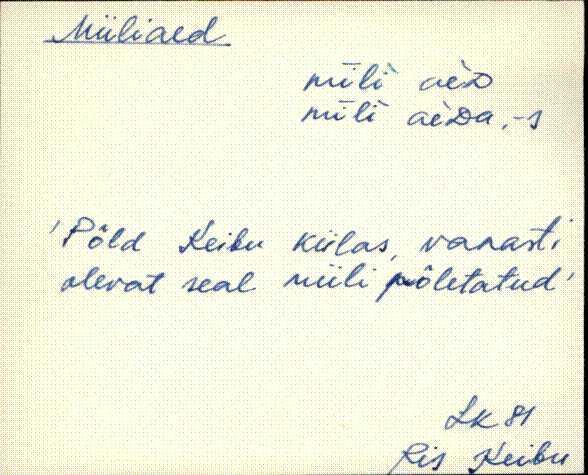 Miiliaed
mīlì aèD
mīlì aèDa, -s
'Põld Keibu külas, vanasti
olevat seal miili põletatud'
LK 81
Ris Keibu